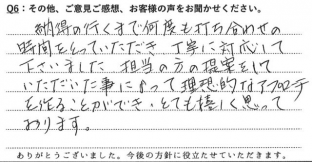 Q6：その他、ご意見ご感想、お客様の声をお聞かせください。
納得の行くまで何度も打ち合わせの
時間をとっていただき丁寧に対応して
下さいました 担当の方の提案をして
いただいた事によって理想的なアプローチ
を作ることができ、とても嬉しく思って
おります。
ありがとうございました。今後の方針に役立たせていただきます。